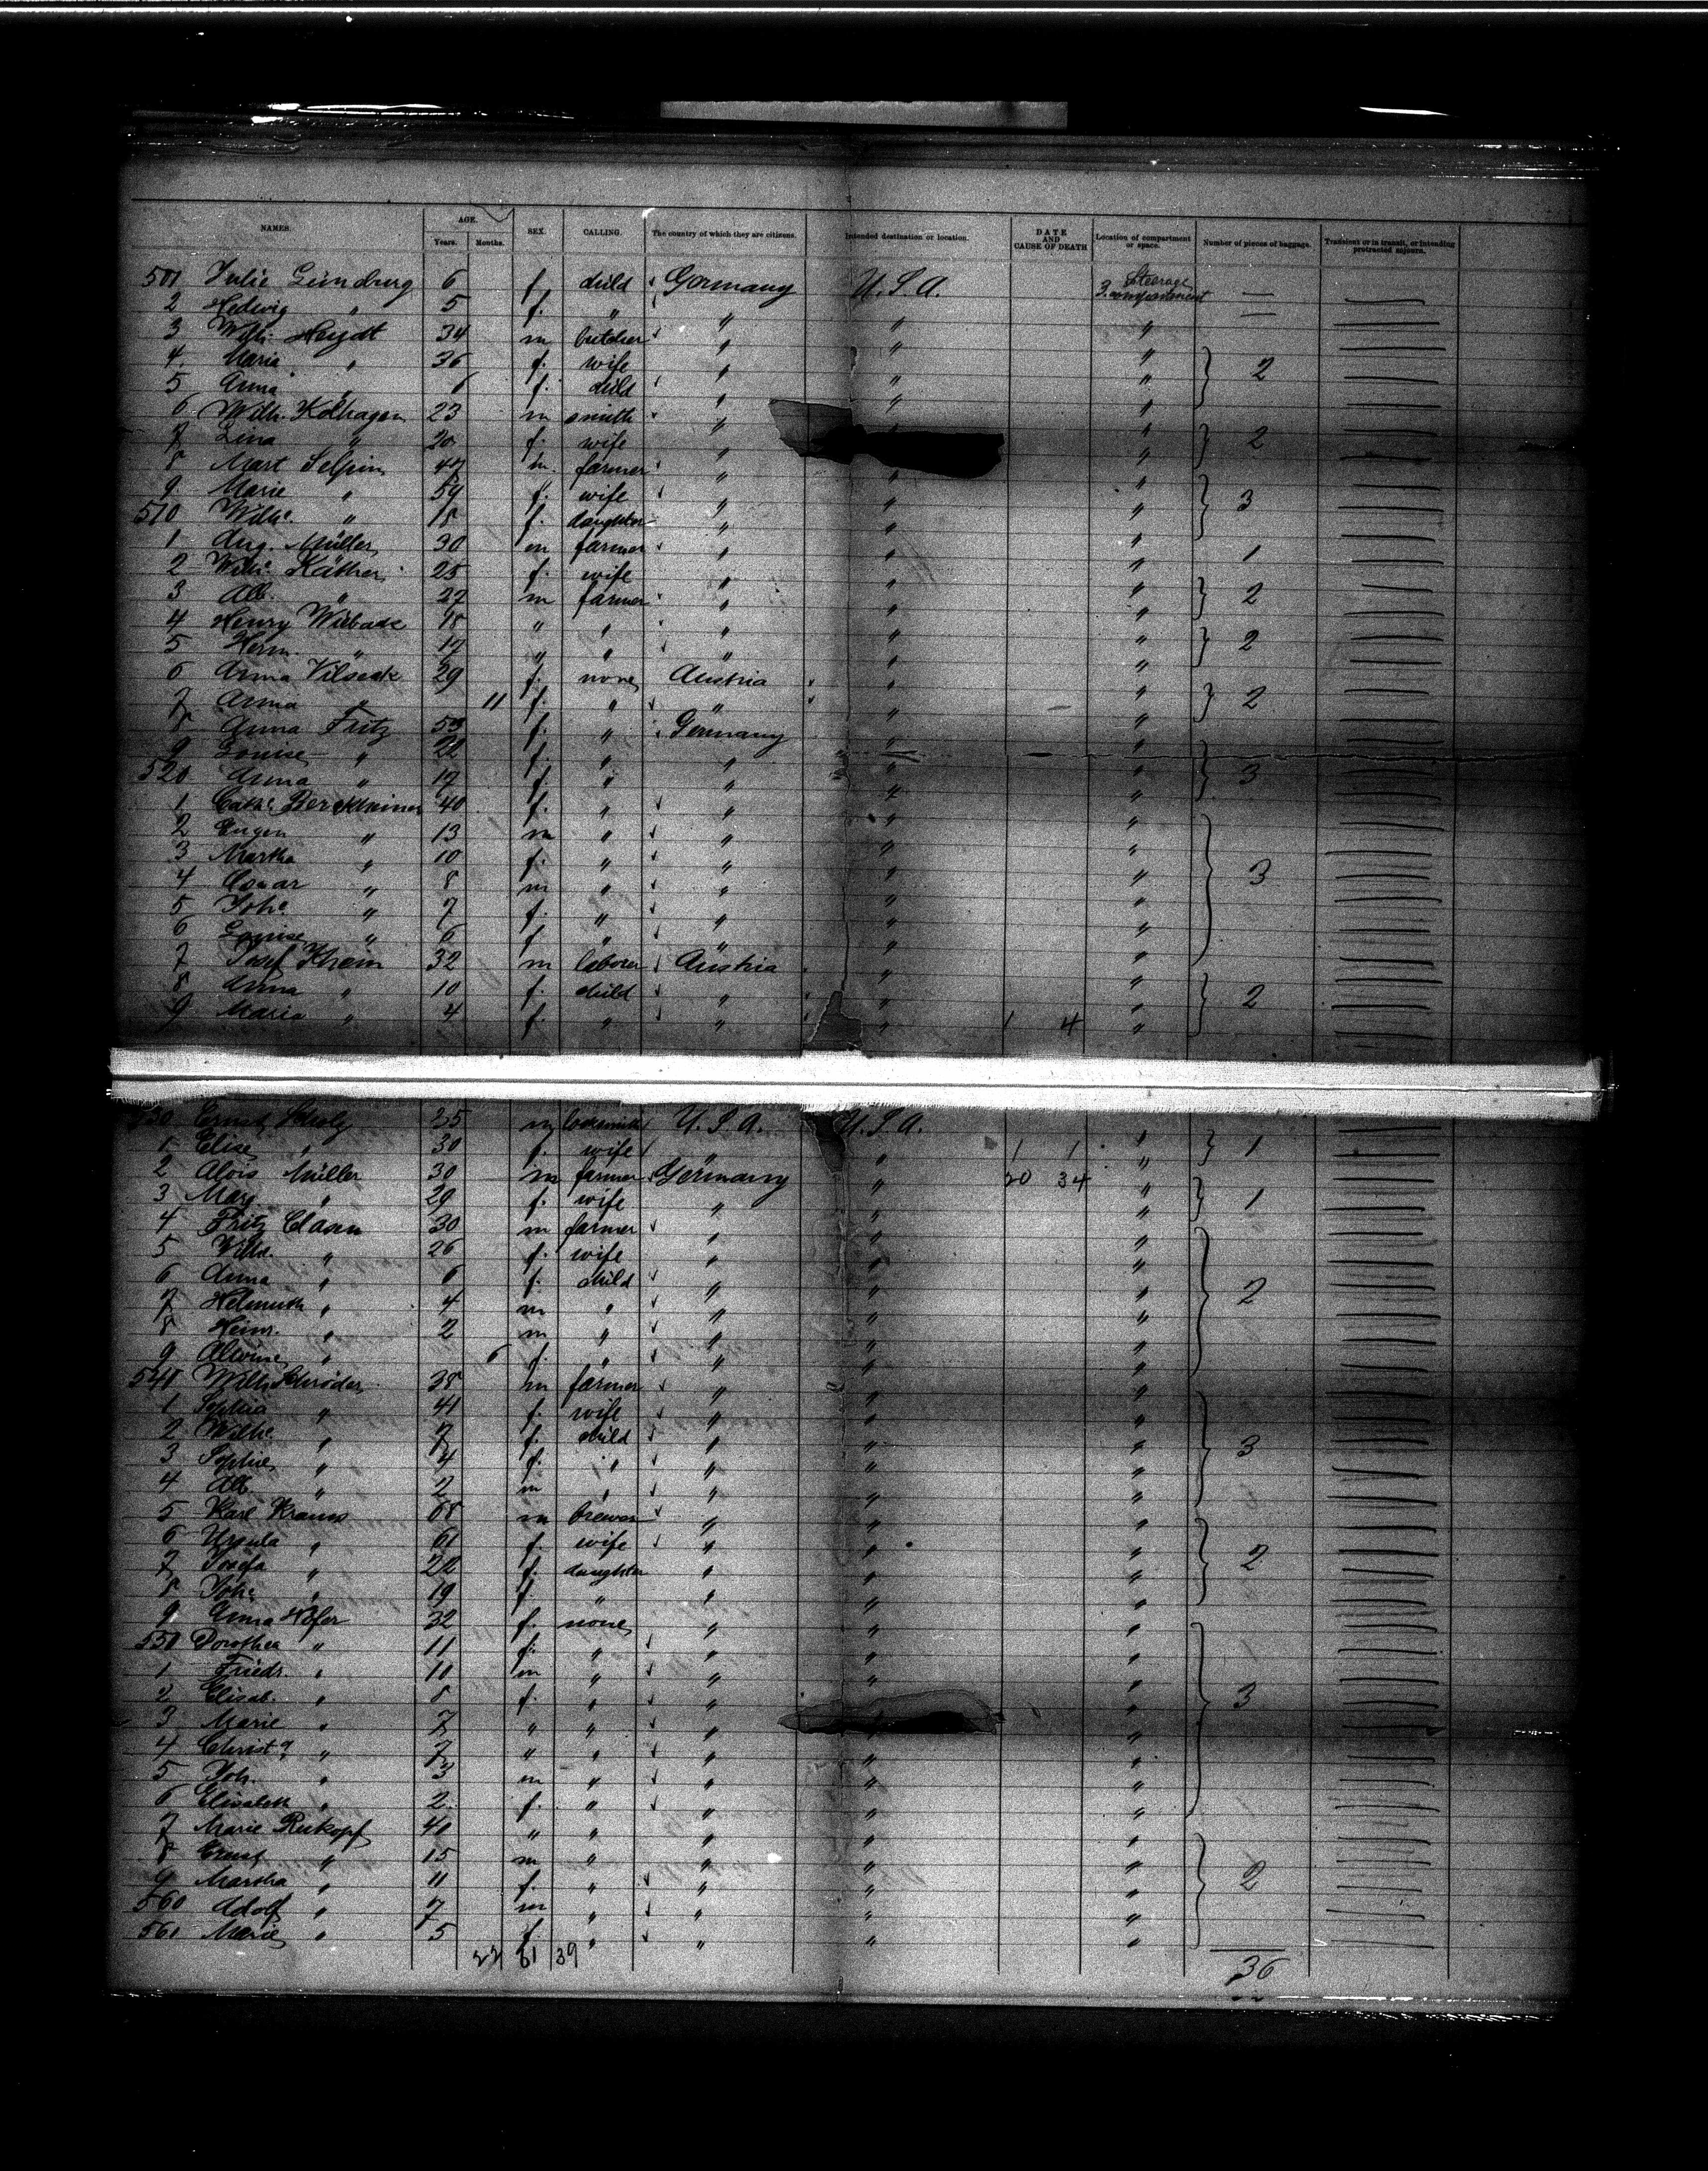 NAMES. AGE. Years. Months. SEX. CALLING. The country of which they are citizens. Intended destination or location. DATE AND CAUSE OF DEATH Location of compartment or space. Number of pieces of baggage. Transient or in transit, or intending protracted sojourn.
501 Julie 6 f. child Germany U.S.A. Steerage 3. compartment —
2 Hedwig " 5 f. " " " " —
3 Wilh. Heydt 34 m butcher " " "
4 Maria " 36 f. wife " " " 2
5 Anna " 6 f. child " " "
6 Wilh. Kolhagen 23 m smith " " "
7 Lina " 20 f. wife " " " 2
8 Mart Selpin 47 m. farmer " " "
9 Marie " 54 f. wife " " " 3
510 Wilhe. " 18 f. daughter " " "
1 Aug. Müller 30 m farmer " " " 1
2 Wilhe. Käther 25 f. wife " " "
3 Alb. " 27 m farmer " " " 2
4 Henry 18 " " " " "
5 Herm. " 17 " " " " " 2
6 Anna Vilseck 29 f. none Austria " "
7 Anna " 11 f. " " " " 2
8 Anna Fritz 53 f. " Germany " "
9 Louise " 22 f. " " " "
520 Anna " 17 f. " " " " 3
1 Cathe. 40 f. " " " "
2 Eugen " 13 m " " " "
3 Martha " 10 f. " " " "
4 Oscar " 8 m " " " " 3
5 Johe. " 7 f. " " " "
6 Louise " 6 f. " " " "
7 Josef 32 m laborer Austria " "
8 Anna " 10 f. child " " " 2
9 Maria " 4 f. " " " 1 4 "
530 Ernst Scholz 25 m locksmith U.S.A. U.S.A. "
1 Elise " 30 f. wife " " 1 1 " 1
2 Alois Müller 30 m farmer Germany " 20 34 "
3 Mary " 29 f. wife " " " 1
4 Fritz Clasen 30 m farmer " " "
5 Wilhe. " 26 f. wife " " "
6 Anna " 6 f. child " " " 2
7 Helmuth " 4 m " " " "
8 Heinr. " 2 m " " " "
9 Alwine " 6 f. " " " "
540 Wilh. Schröder 38 m farmer " " "
1 Sophia " 41 f. wife " " "
2 Wilhe. " 7 f. child " " " 3
3 Sophie " 4 f. " " " "
4 Alb. " 2 m " " " "
5 Karl Krauss 68 m brewer " " "
6 Ursula " 61 f. wife " " " 2
7 Josefa " 22 f. daughter " " "
8 Johe. " 19 f. " " " "
9 Anna Höfer 32 f. none " " "
550 Dorothea " 11 f. " " " "
1 Friedr. " 10 m " " " "
2 Elisab. " 8 f. " " " " 3
3 Marie " 7 " " " " "
4 Christe. " 7 " " " " "
5 Joh. " 3 m " " " "
6 Elisabeth " 2 f. " " " "
7 Marie Rukopf 40 " " " " "
8 Ernst " 15 m " " " "
9 Martha " 11 f. " " " " 2
560 Adolf " 7 m " " " "
561 Marie " 5 f. " " " "
22 61 39 36